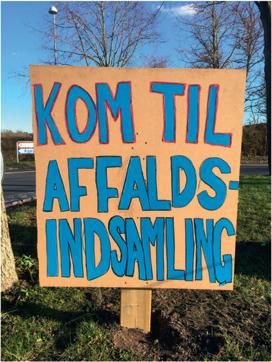 KOM TIL
AFFALDS-
INDSAMLING